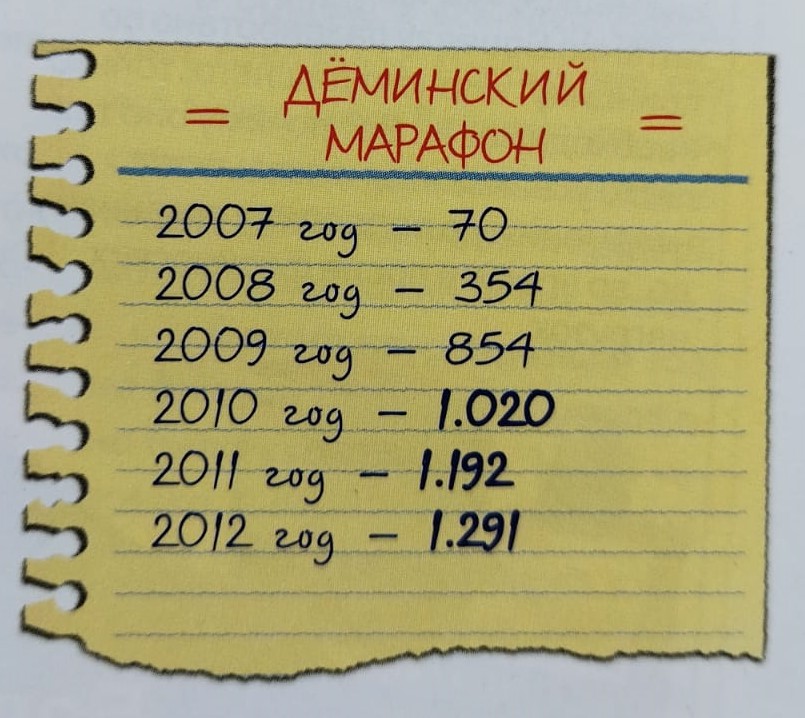 ДЁМИНСКИЙ
= МАРАФОН =
2007 год – 70
2008 год – 354
2009 год – 854
2010 год – 1.020
2011 год – 1.192
2012 год – 1.291